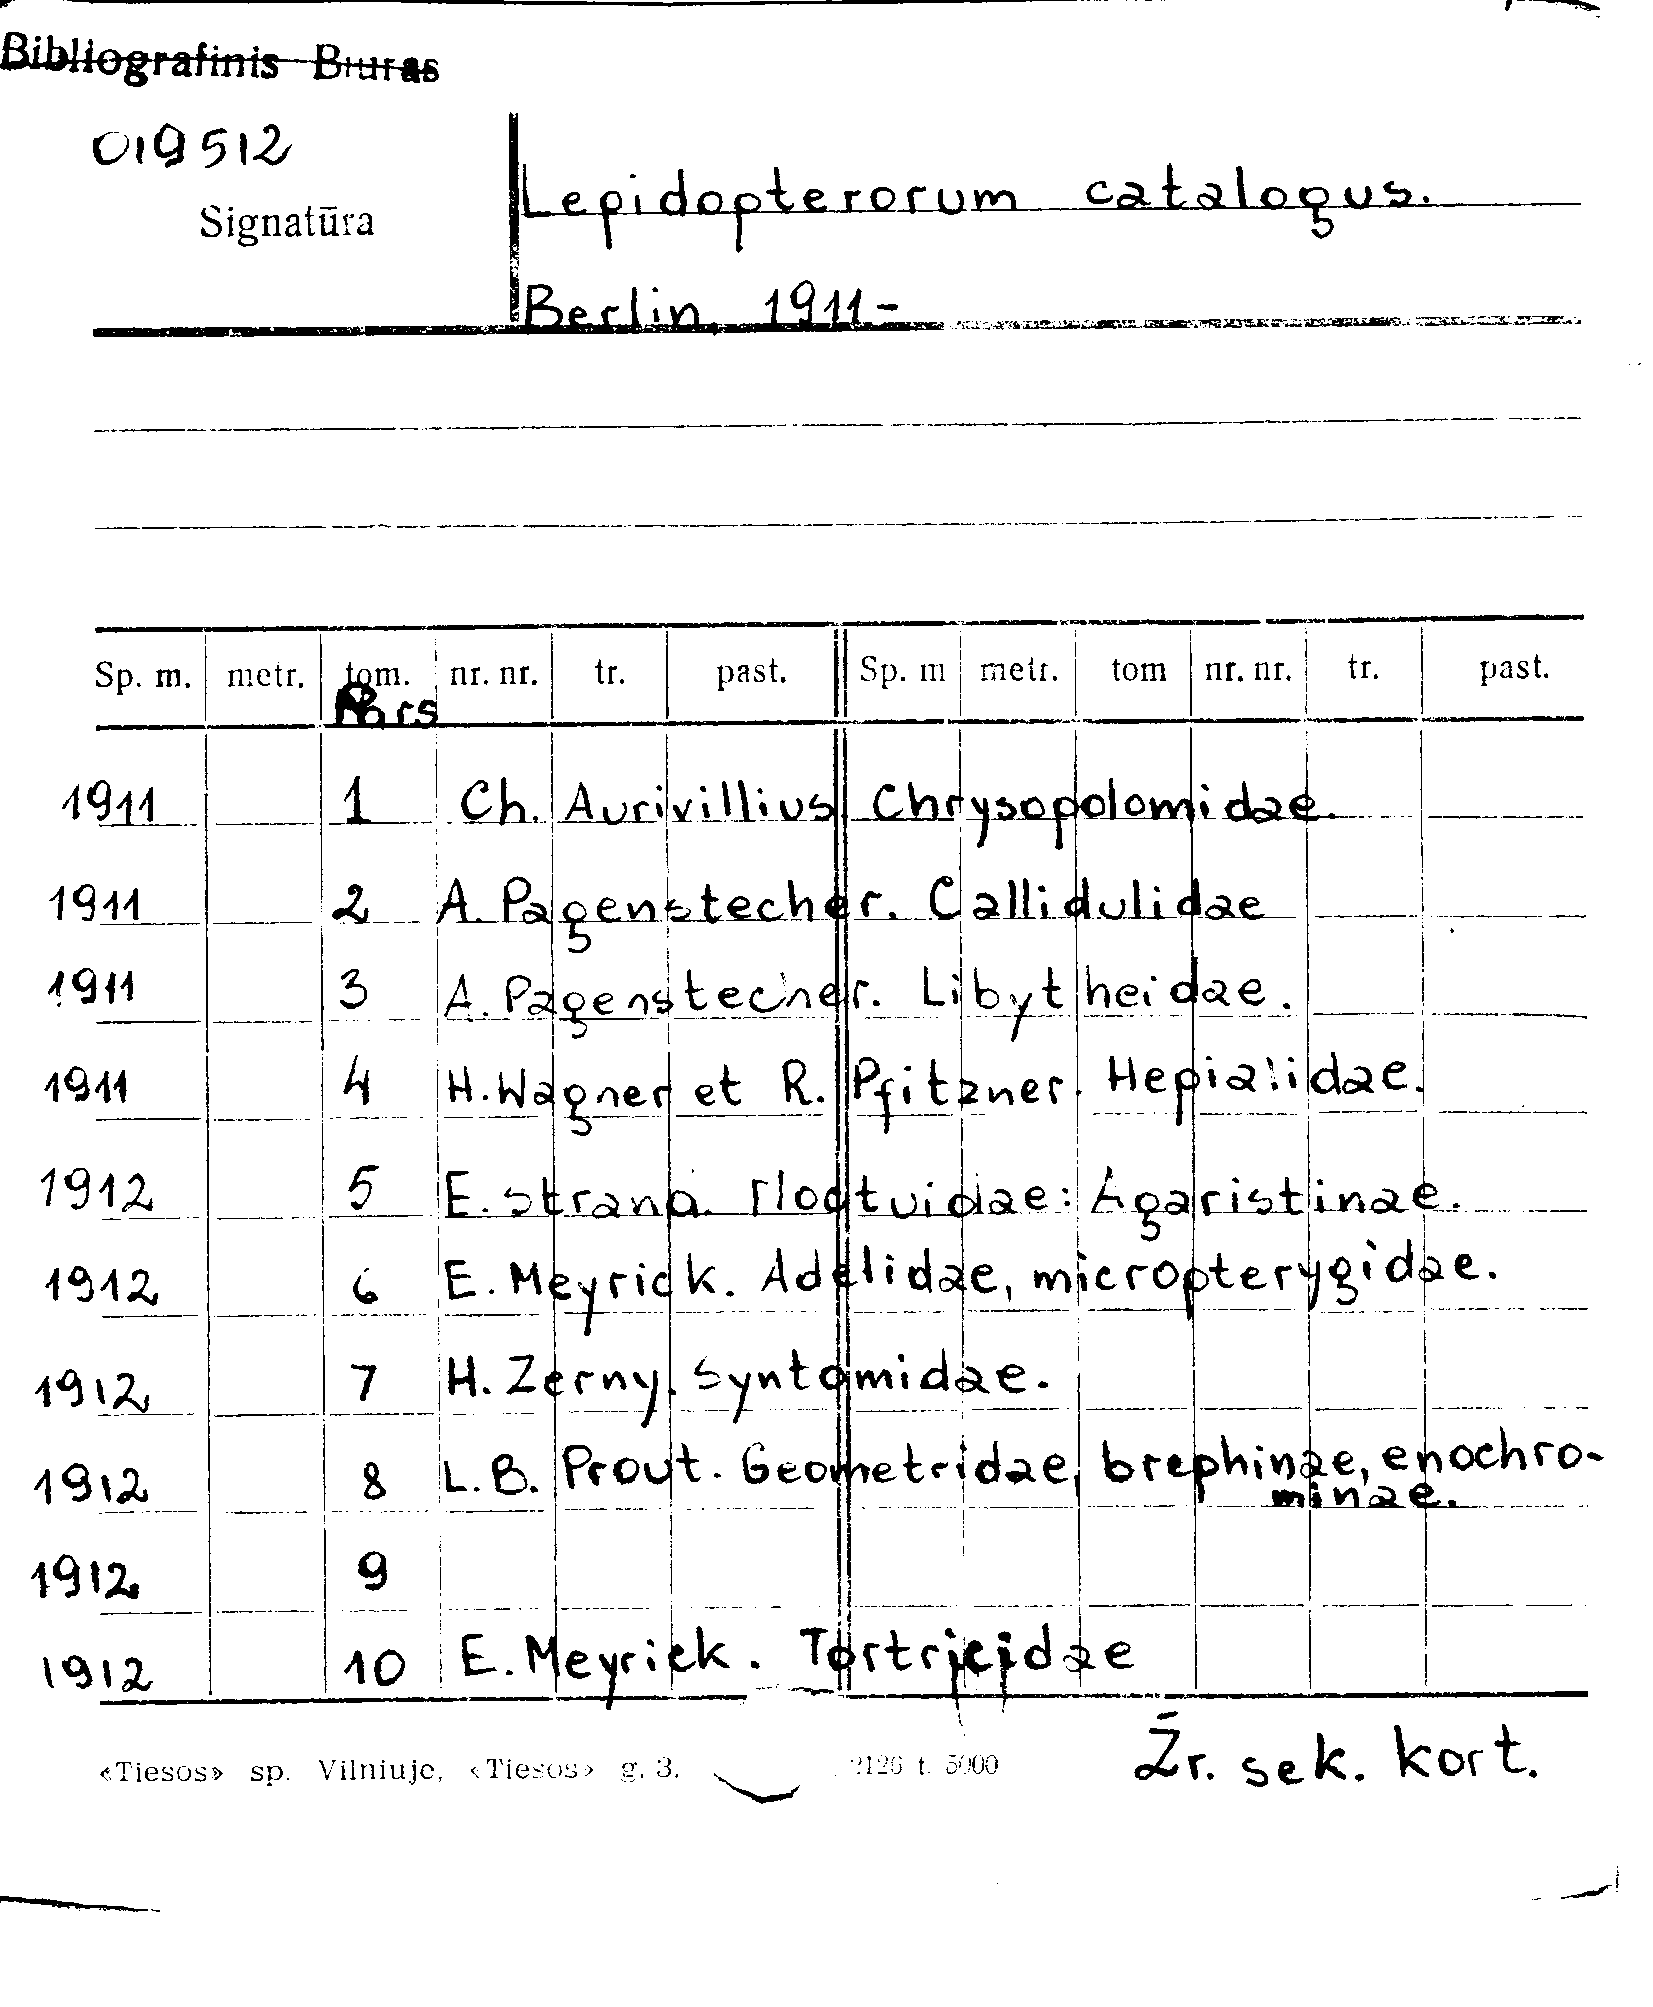 Bibliografinis Biuras
019512
Signatūra
Lepidopterorum catalogus.
Berlin, 1911-
Sp. m. metr. tom. nr. nr. tr. past. Sp. m metr. tom nr. nr. tr. past.
Pars
1911 1 Ch. Aurivillius Chrysopolomidae.
1911 2 A. Pagenstecher. Callidulidae
1911 3 A. Pagenstecher. Libytheidae.
1911 4 H. Wagner et R. Pfitzner. Hepialidae.
1912 5 E. Strand. Noctuidae: Agaristinae.
1912 6 E. Meyrick. Adelidae, micropterygidae.
1912 7 H. Zerny. Syntomidae.
1912 8 L. B. Prout. Geometridae, brephinae, enochro-
minae.
1912 9
1912 10 E. Meyrick. Tortricidae
Žr. sek. kort.
«Tiesos» sp. Vilniuje, «Tiesos» g. 3. 2126 t. 5000